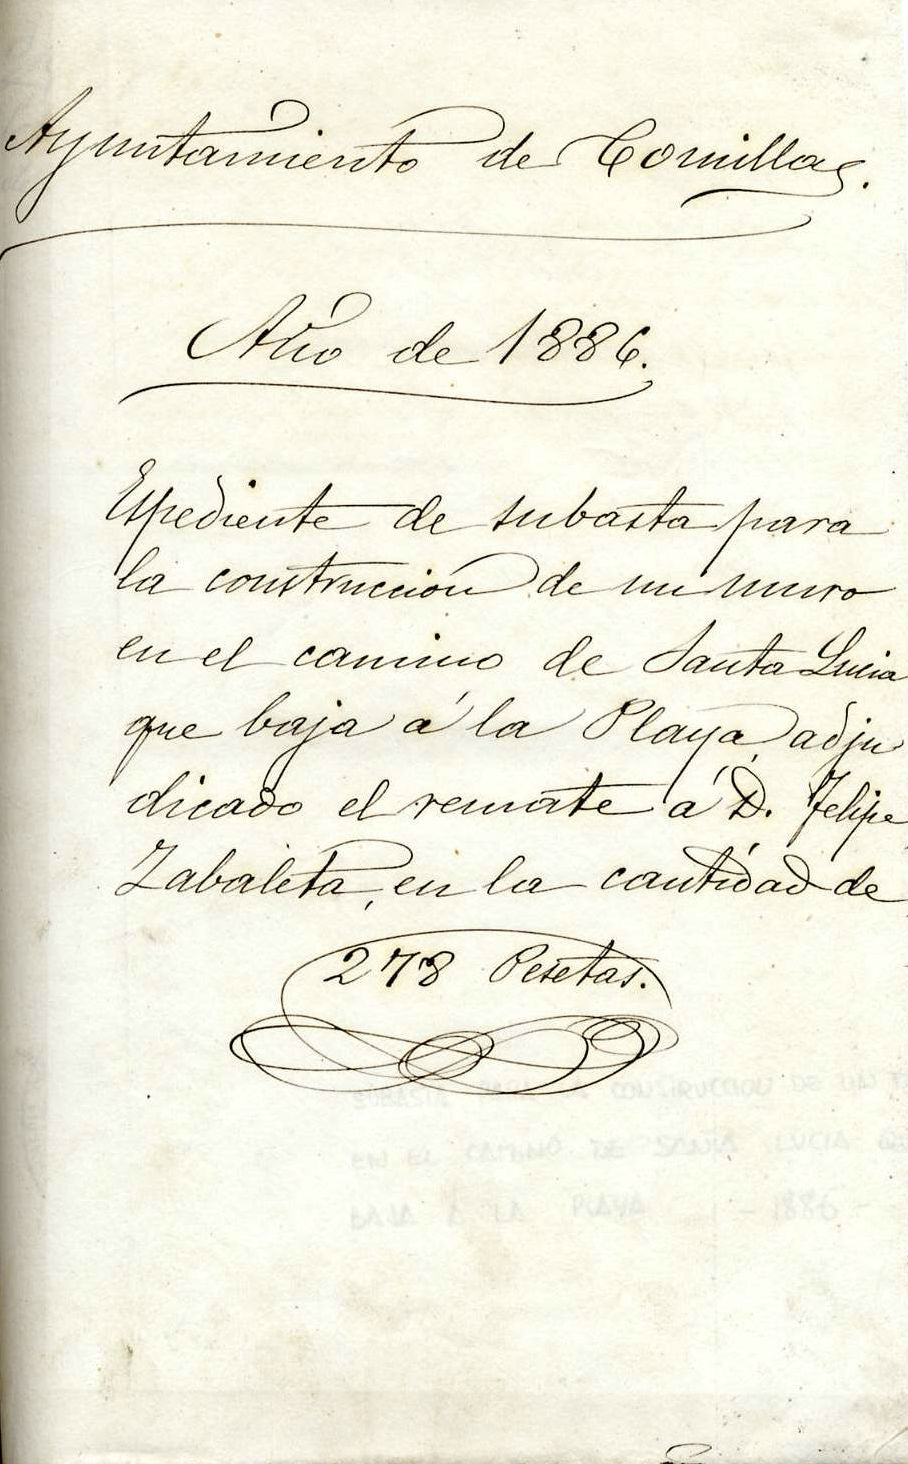 Ayuntamiento de Comillas.
Año de 1886.
Espediente de subasta para
la construccion de un muro
en el camino de Santa Lucia
que baja á la Playa, adju
dicado el remate á D. Felipe
Zabaleta, en la cantidad de
278 Pesetas.
SUBASTA PARA LA CONSTRUCCION DE UN
EN EL CAMINO DE SANTA LUCIA
BAJA A LA PLAYA - 1886 -